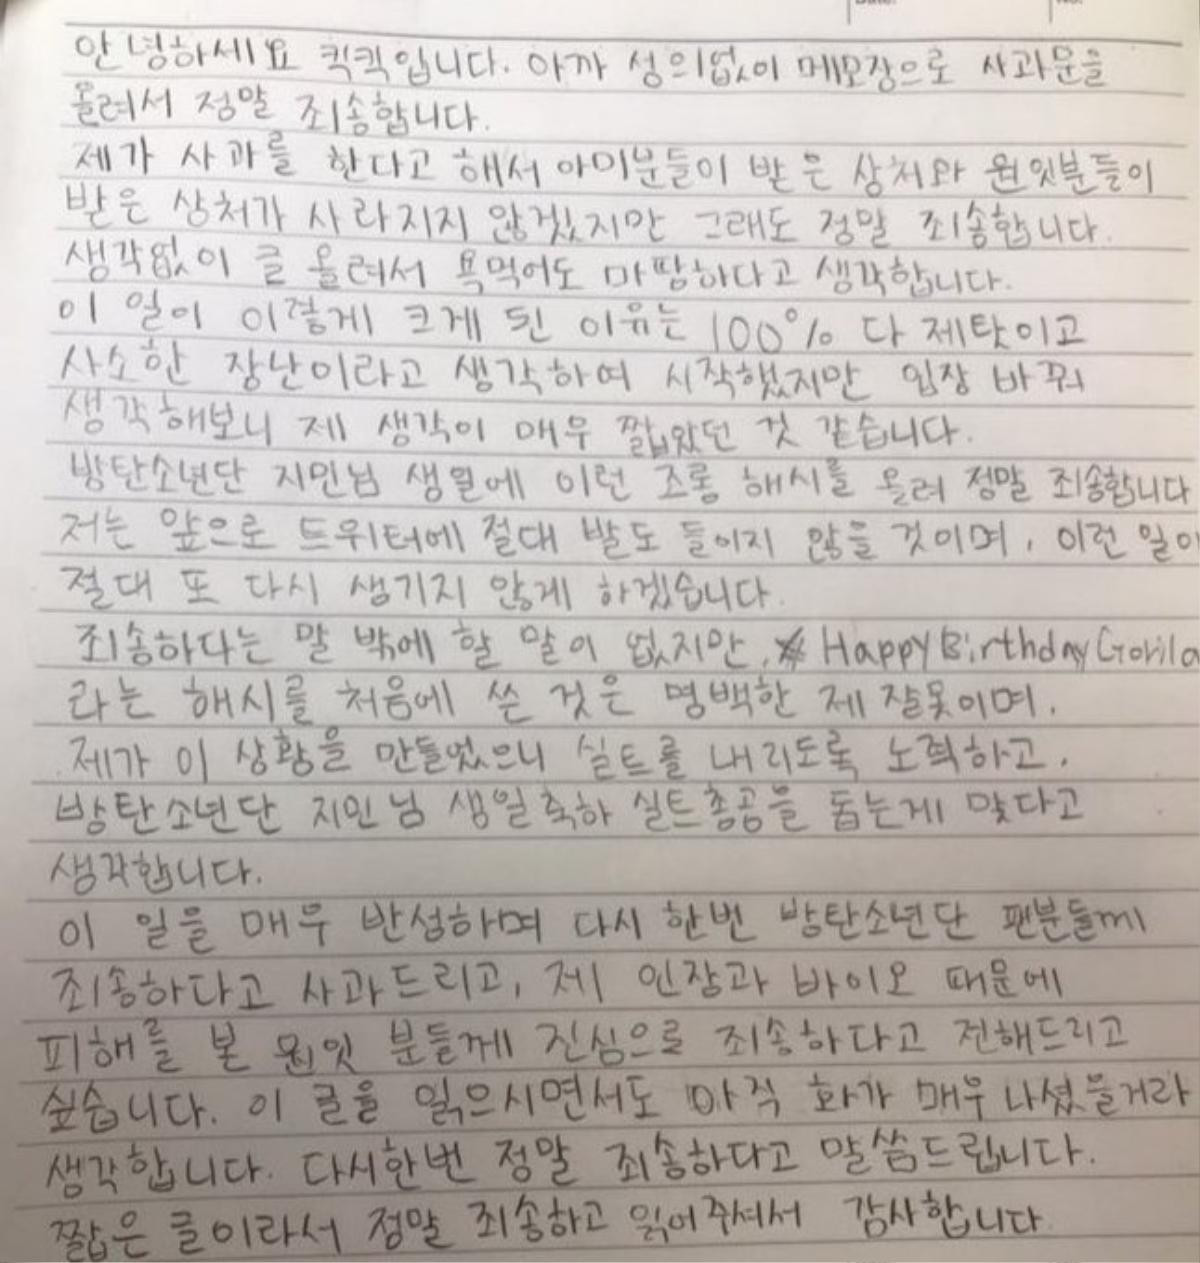 안녕하세요 킥킥입니다. 아까 성의없이 메모장으로 사과문을
올려서 정말 죄송합니다.
제가 사과를 한다고 해서 아미분들이 받은 상처와 원잇분들이
받은 상처가 사라지지 않겠지만 그래도 정말 죄송합니다.
생각없이 글 올려서 욕먹어도 마땅하다고 생각합니다.
이 일이 이렇게 크게 된 이유는 100% 다 제탓이고
사소한 장난이라고 생각하여 시작했지만 입장 바꿔
생각해보니 제 생각이 매우 짧았던 것 같습니다.
방탄소년단 지민님 생일에 이런 조롱 해시를 올려 정말 죄송합니다
저는 앞으로 트위터에 절대 발도 들이지 않을 것이며, 이런 일이
절대 또 다시 생기지 않게 하겠습니다.
죄송하다는 말 밖에 할 말이 없지만, #HappyBirthdayGorila
라는 해시를 처음에 쓴 것은 명백한 제 잘못이며,
제가 이 상황을 만들었으니 실트를 내리도록 노력하고,
방탄소년단 지민님 생일축하 실트총공을 돕는게 맞다고
생각합니다.
이 일을 매우 반성하며 다시 한번 방탄소년단 팬분들께
죄송하다고 사과드리고, 제 인장과 바이오 때문에
피해를 본 원잇 분들께 진심으로 죄송하다고 전해드리고
싶습니다. 이 글을 읽으시면서도 아직 화가 매우 나셨을거라
생각합니다. 다시한번 정말 죄송하다고 말씀드립니다.
짧은 글이라서 정말 죄송하고 읽어주셔서 감사합니다.